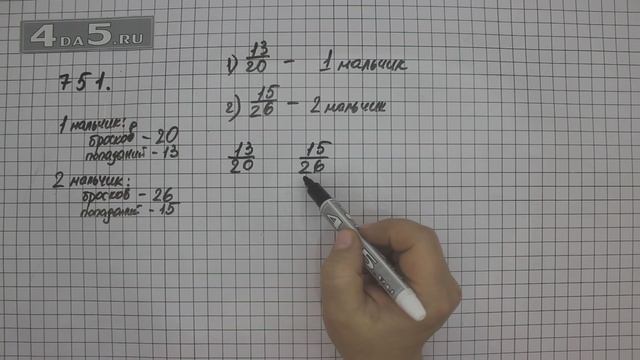 4DA5.RU
751.
1 мальчик:
бросков - 20
попаданий - 13
2 мальчик:
бросков - 26
попаданий - 15
1) 13/20 - 1 мальчик
2) 15/26 - 2 мальчик
13/20 15/26